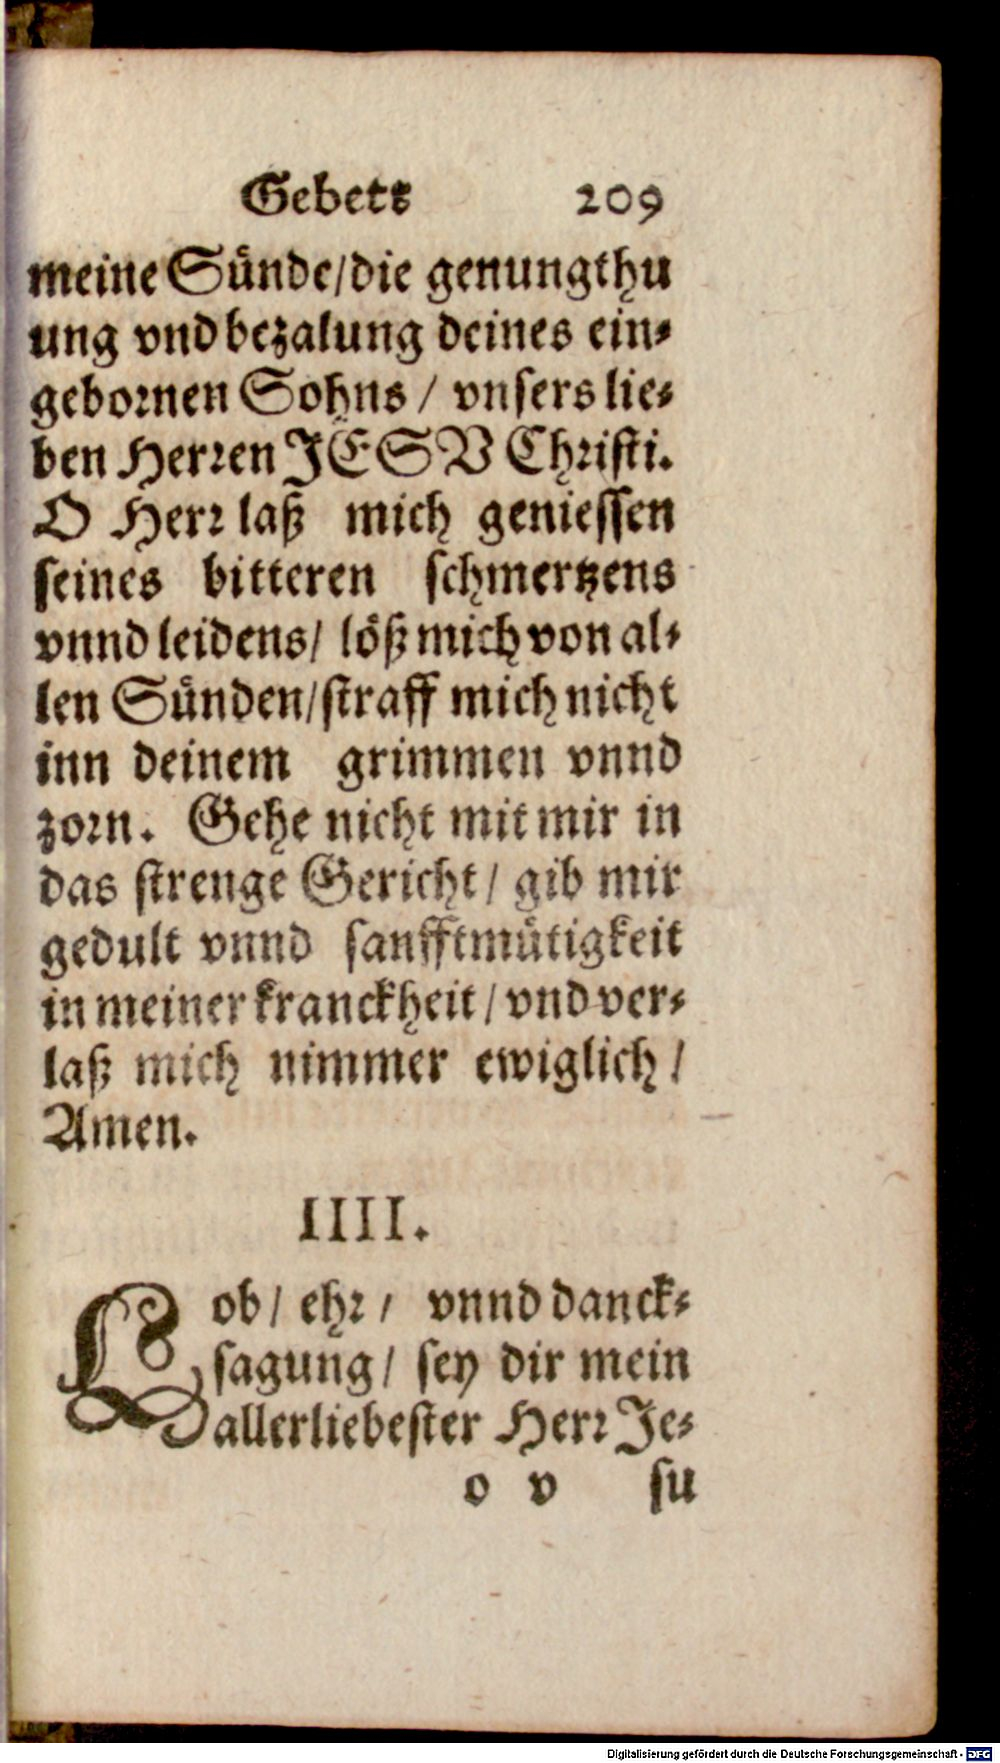 Gebetz 209
meine Sünde/die genungthu
ung vnd bezalung deines ein⸗
gebornen Sohns / vnsers lie⸗
ben Herren JESV Christi.
O Herr laß mich geniessen
seines bitteren schmertzens
vnnd leidens/ löß mich von al⸗
len Sünden/straff mich nicht
inn deinem grimmen vnnd
zorn. Gehe nicht mit mir in
das strenge Gericht/ gib mir
gedult vnnd sanfftmütigkeit
in meiner kranckheit/ vnd ver⸗
laß mich nimmer ewiglich /
Amen.
IIII.
Lob/ ehr/ vnnd danck⸗
sagung/ sey dir mein
allerliebester Herr Je⸗
o v su
Digitalisierung gefördert durch die Deutsche Forschungsgemeinschaft - DFG